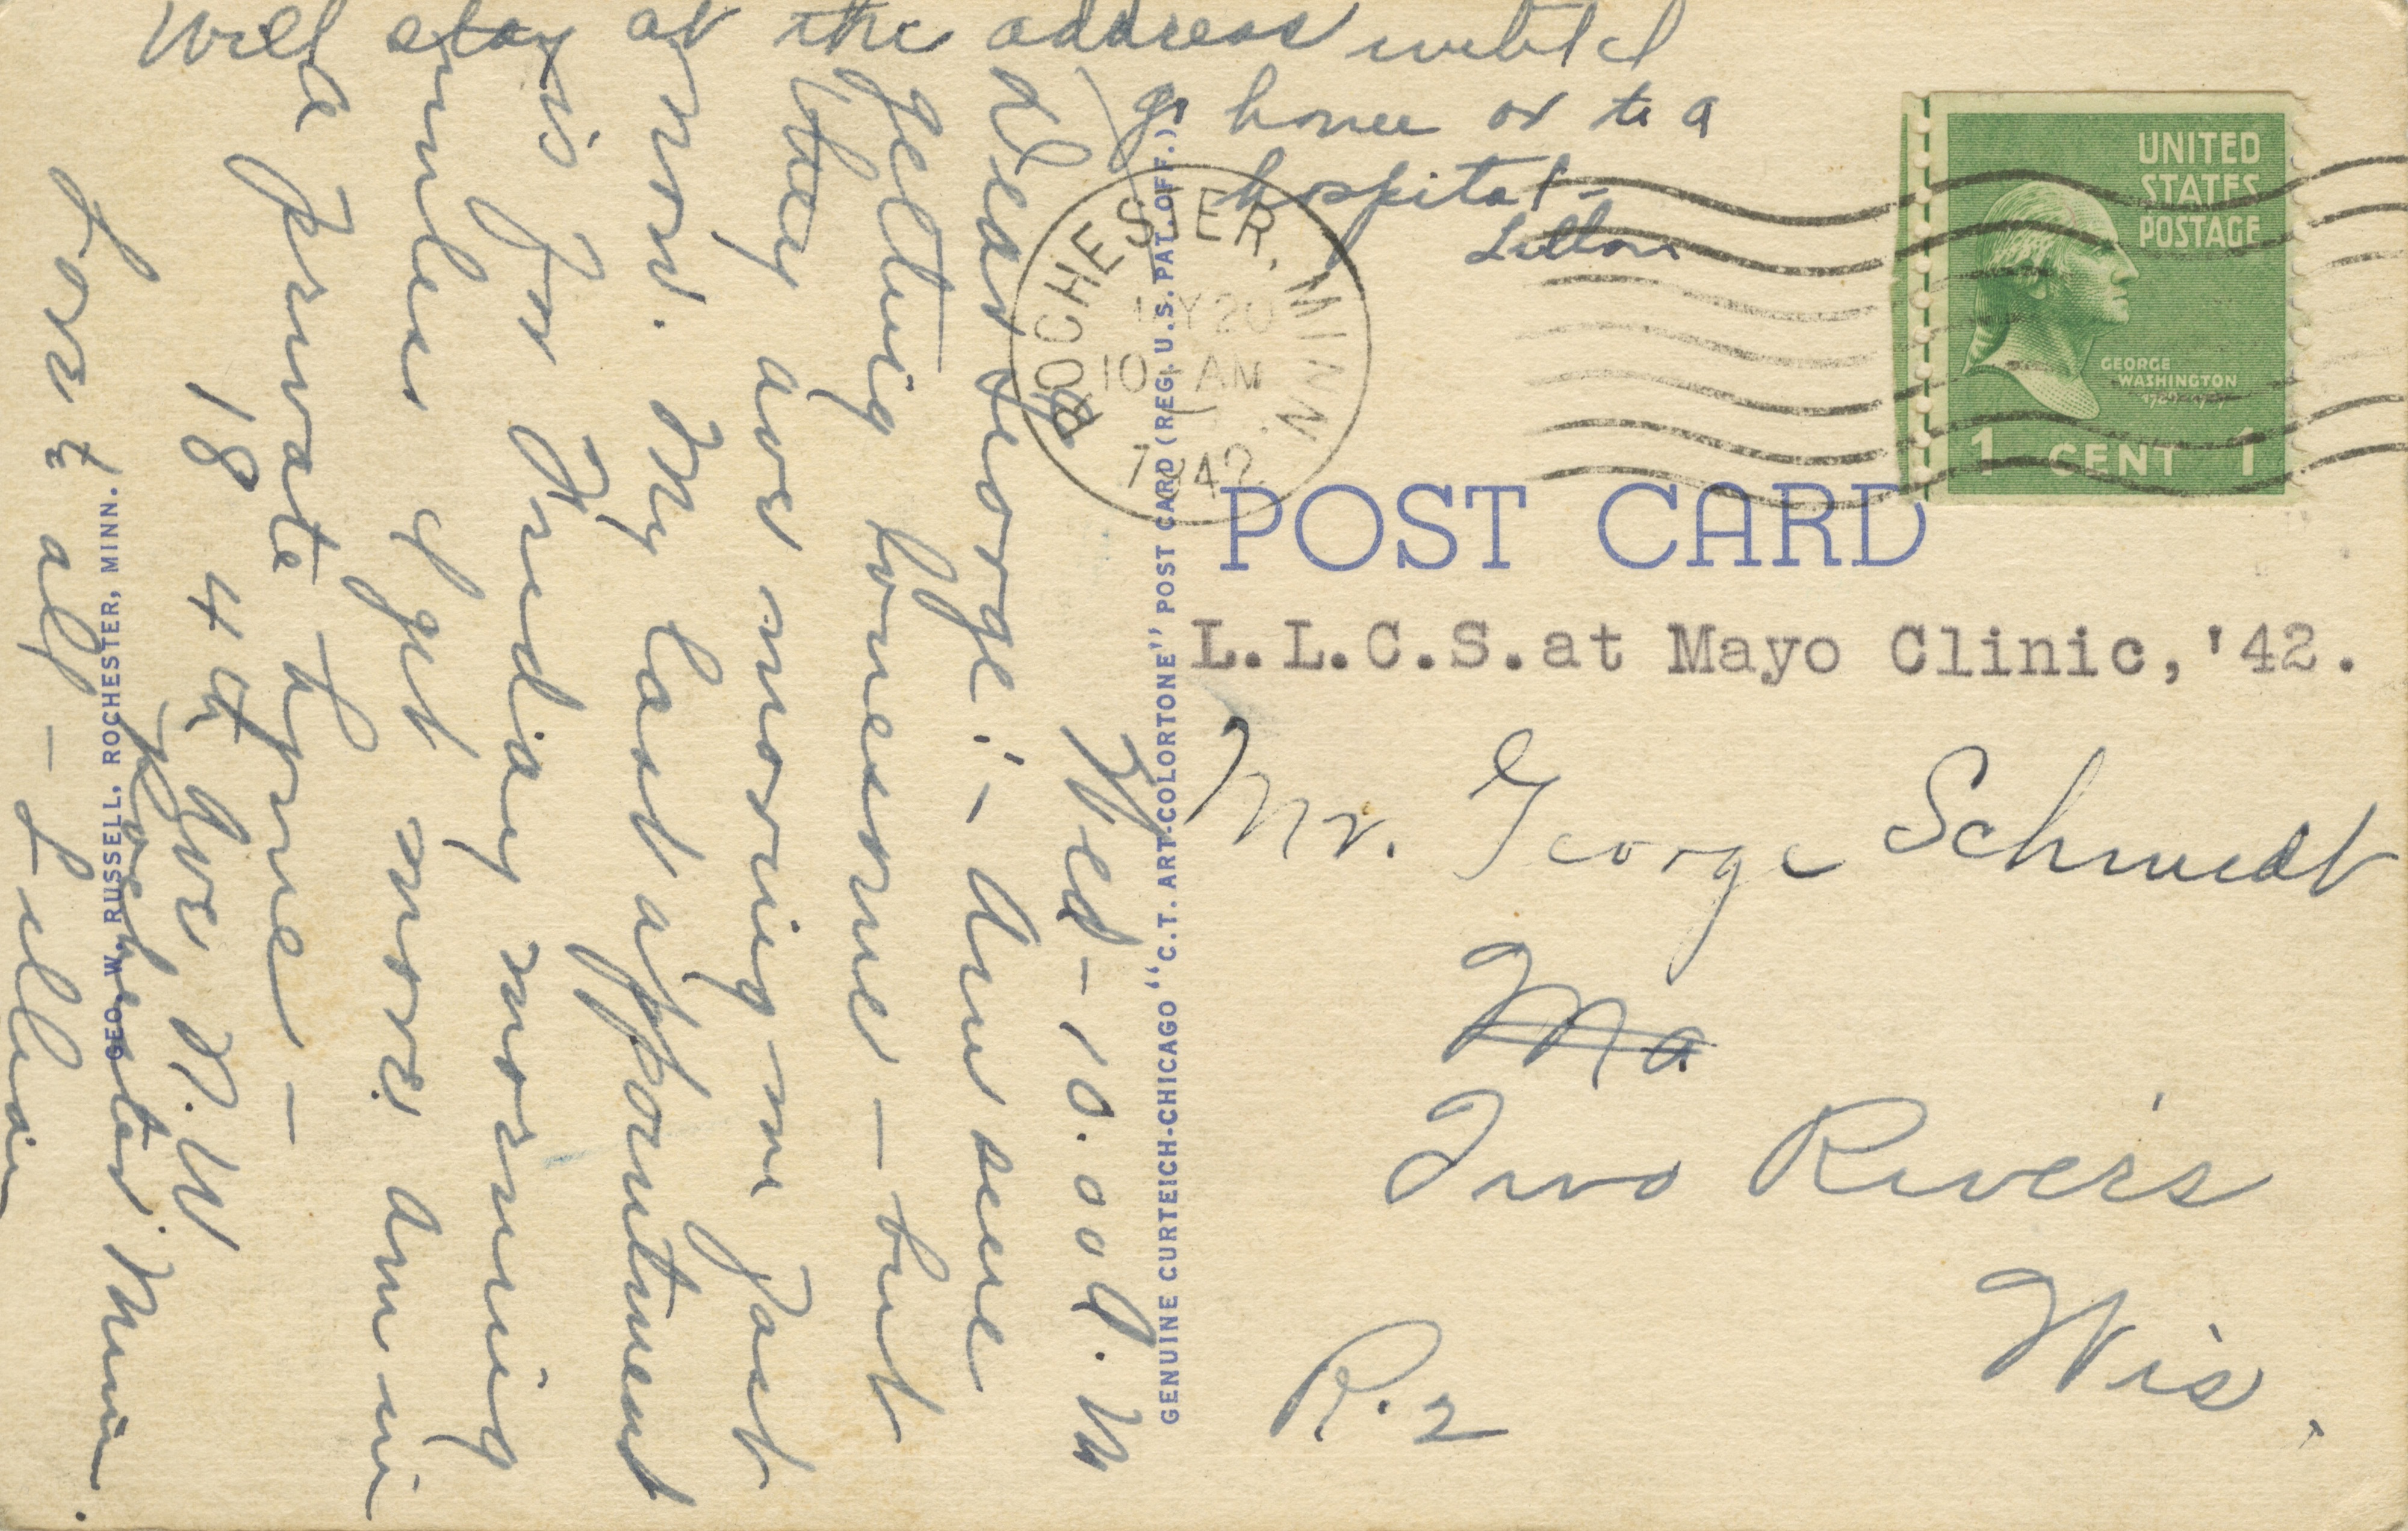 Will stay at the address until I
go home or to a
hospital -
Lillian
ROCHESTER, MINN.
MY 20
10 - AM
1942
UNITED
STATES
POSTAGE
GEORGE
WASHINGTON
1 CENT 1
POST CARD
L.L.C.S. at Mayo Clinic, '42.
Mr. George Schmidt
Two Rivers
Wis.
R. 2
Wed - 10.00 A.M
Dear George: - Am sure
getting lonesome - but
they are moving me fast
now. My last appointment
is for Friday morning
unless I get more am in
a private home -
18 4th Ave N.W
Rochester Minn.
Love to all - Lillian
GENUINE CURTEICH-CHICAGO "C.T. ART-COLORTONE" POST CARD (REG. U.S. PAT. OFF.)
GEO. W. RUSSELL, ROCHESTER, MINN.